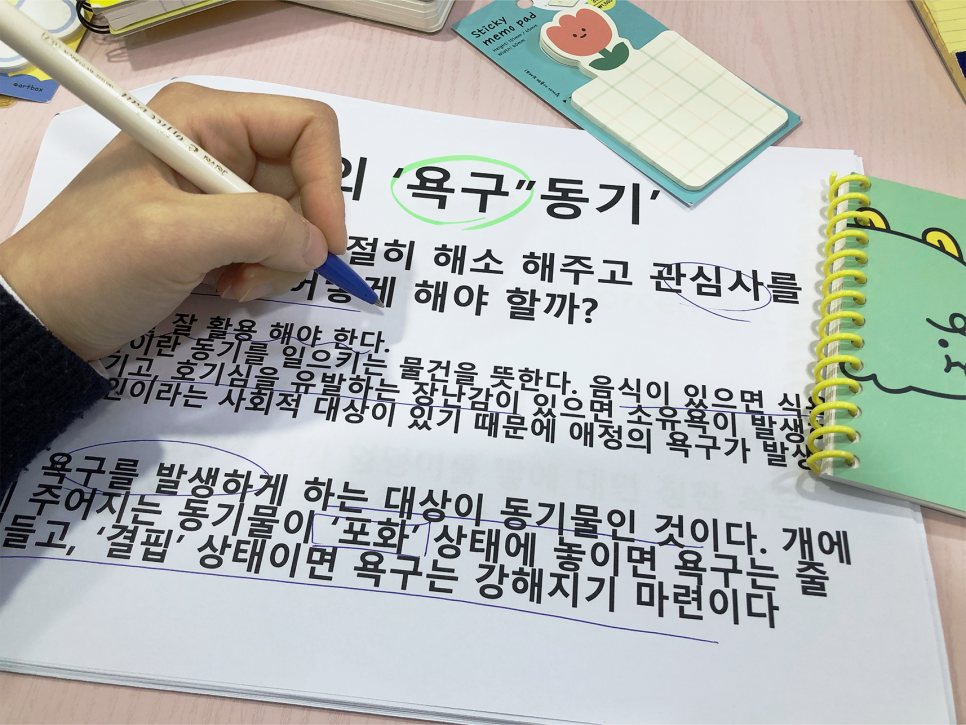 Sticky
memo pad
martbox
의 '욕구''동기'
절히 해소 해주고 관심사를
어떻게 해야 할까?
잘 활용 해야 한다.
이란 동기를 일으키는 물건을 뜻한다. 음식이 있으면
기고, 호기심을 유발하는 장난감이 있으면 소유욕이 발생
인이라는 사회적 대상이 있기 때문에 애정의 욕구가 발생
욕구를 발생하게 하는 대상이 동기물인 것이다. 개에
주어지는 동기물이 '포화' 상태에 놓이면 욕구는 줄
들고, '결핍' 상태이면 욕구는 강해지기 마련이다